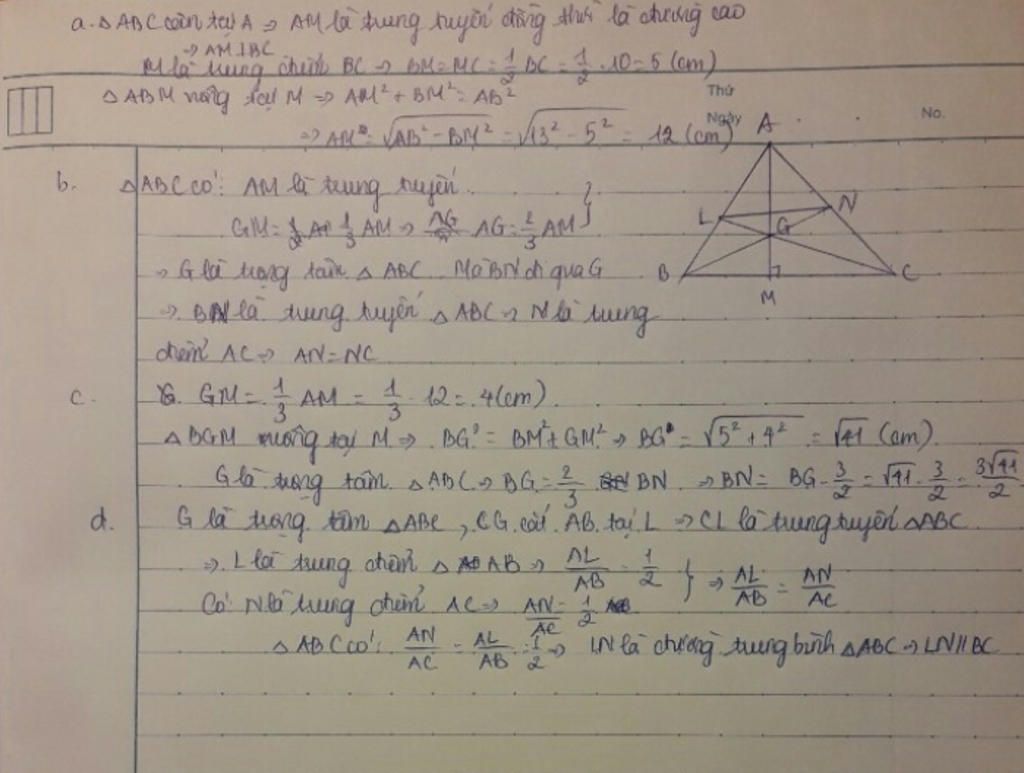 a. △ABC cân tại A ⇒ AM là trung tuyến đồng thời là đường cao
→ AM⊥BC
M là trung điểm BC → BM=MC=1/2 BC=1/2·10=5(cm)
△ABM vuông tại M ⇒ AM²+BM²=AB²
Thứ
Ngày
No.
⇒ AM=√(AB²−BM²)=√(13²−5²)=12(cm)
b. △ABC có: AM là trung tuyến
GM=1/3 AM ⇒ AG=2/3 AM }
⇒ G là trọng tâm △ABC Mà BN đi qua G
⇒ BN là trung tuyến △ABC ⇒ N là trung
điểm AC ⇒ AN=NC
c. GM=1/3 AM=1/3·12=4(cm)
△BGM vuông tại M ⇒ BG²=BM²+GM² ⇒ BG=√(5²+4²)=√41 (cm)
G là trọng tâm △ABC ⇒ BG=2/3 BN ⇒ BN=BG·3/2=√41·3/2=3√41/2
d. G là trọng tâm △ABC, CG cắt AB tại L ⇒ CL là trung tuyến △ABC
⇒ L là trung điểm AB ⇒ AL/AB=1/2 } ⇒ AL/AB=AN/AC
Có: N là trung điểm AC ⇒ AN/AC=1/2
△ABC có: AN/AC=AL/AB=1/2 ⇒ LN là đường trung bình △ABC ⇒ LN//BC
A
L
N
G
B
C
M